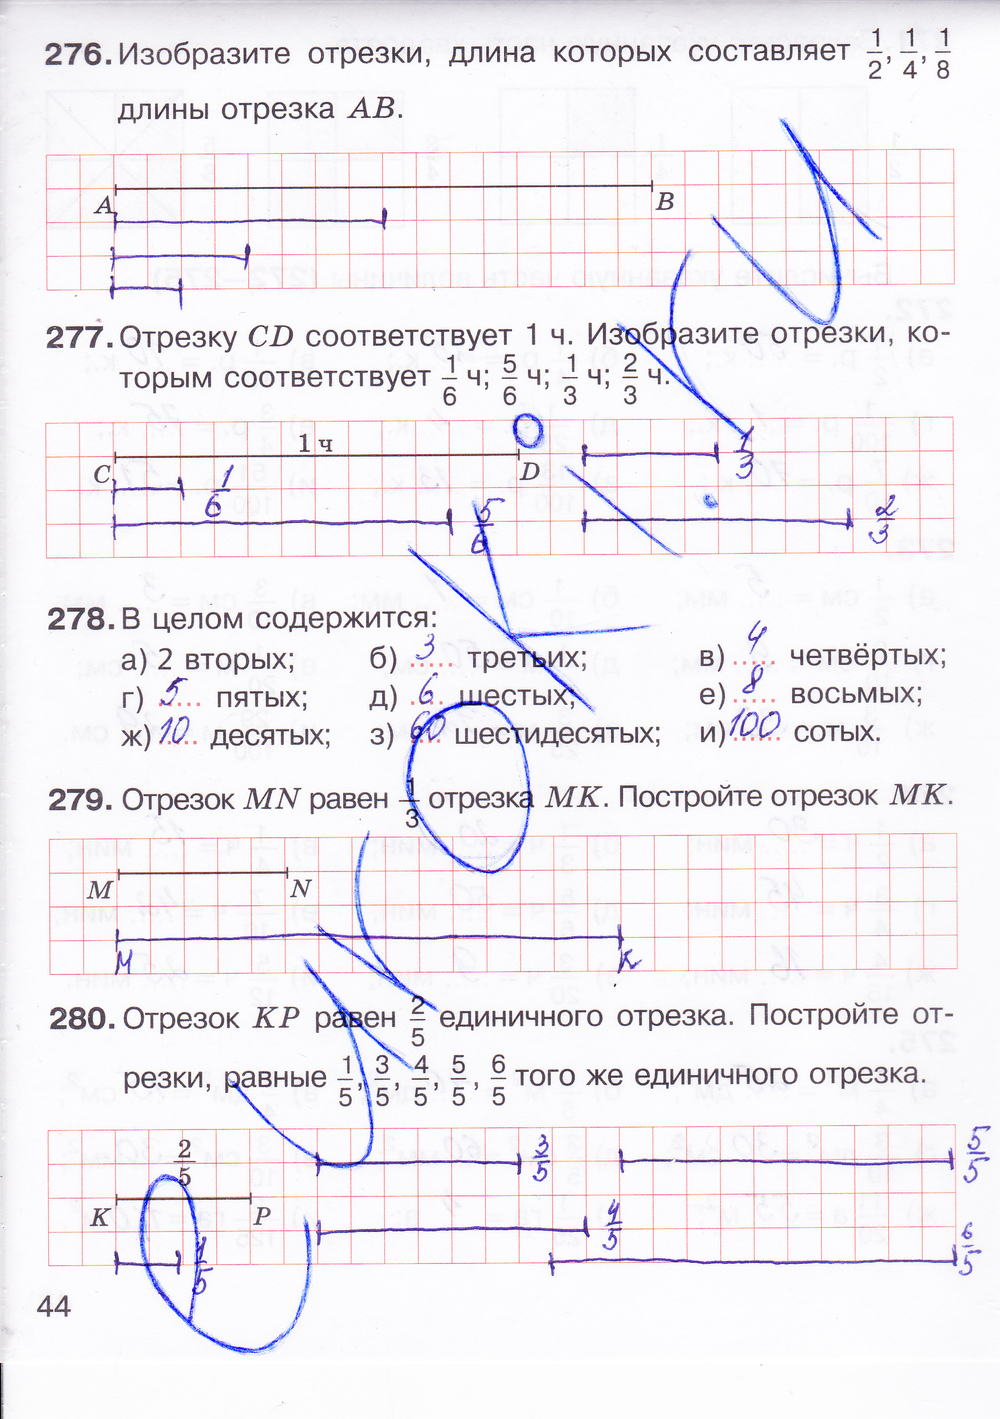 276. Изобразите отрезки, длина которых составляет 1/2, 1/4, 1/8
длины отрезка AB.
A B
277. Отрезку CD соответствует 1 ч. Изобразите отрезки, ко-
торым соответствует 1/6 ч; 5/6 ч; 1/3 ч; 2/3 ч.
C 1 ч D 1/3
1/6
5/6 2/3
278. В целом содержится:
а) 2 вторых; б) 3 третьих; в) 4 четвёртых;
г) 5 пятых; д) 6 шестых; е) 8 восьмых;
ж) 10 десятых; з) 60 шестидесятых; и) 100 сотых.
279. Отрезок MN равен 1/3 отрезка MK. Постройте отрезок MK.
M N
M K
280. Отрезок KP равен 2/5 единичного отрезка. Постройте от-
резки, равные 1/5, 3/5, 4/5, 5/5, 6/5 того же единичного отрезка.
2/5 3/5 5/5
K P 4/5
1/5 6/5
44